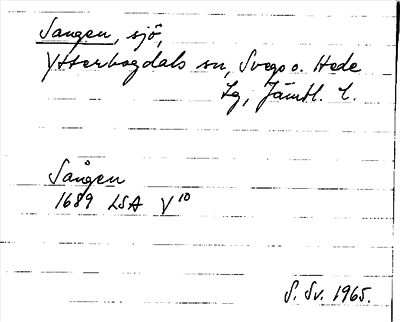 Sangen, sjö,
Ytterhogdals sn, Svegs o. Hede
Lg, Jämtl. l.
Sången
1689 LSA V¹⁰
S. Sv. 1965.